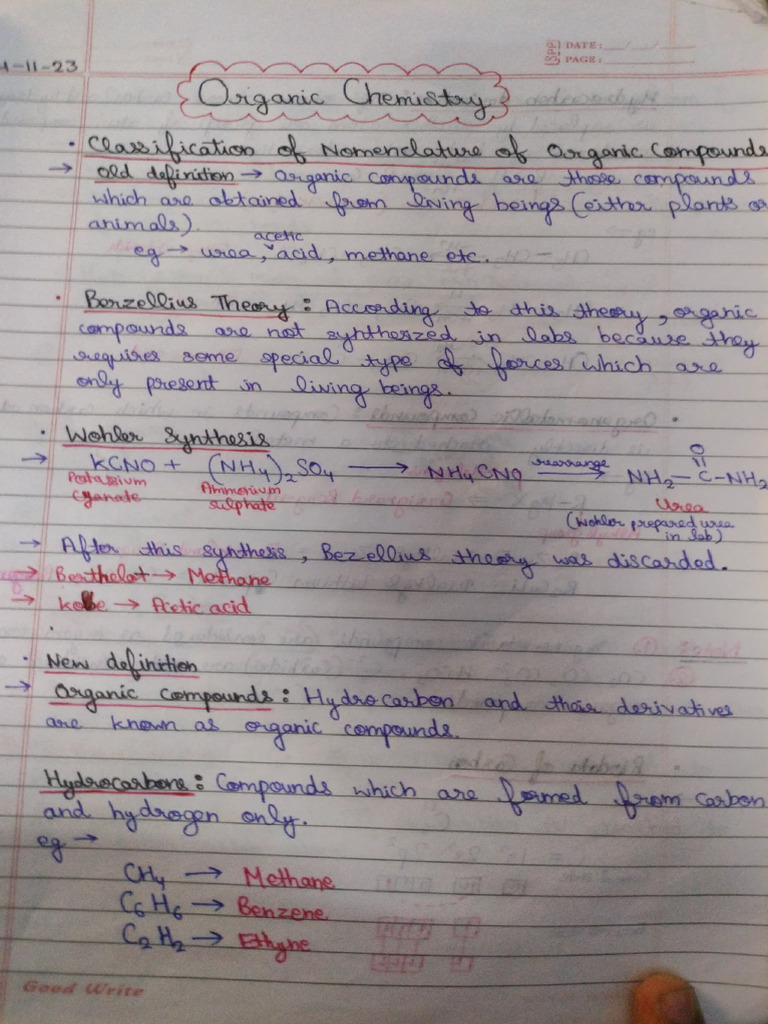 -11-23
DATE: __/__/__
PAGE:
Organic Chemistry
• Classification of Nomenclature of Organic Compounds
→ Old definition → Organic compounds are those compounds
which are obtained from living beings (either plants or
animals).
acetic
eg → urea, acid, methane etc.
• Berzellius Theory : According to this theory, organic
compounds are not syntheszed in labs because they
requires some special type of forces which are
only present in living beings.
• Wohler Synthesis
→ KCNO + (NH4)2SO4 ⟶ NH4CNO rearrange→ NH2–C–NH2
O
Potassium Cyanate
Ammonium sulphate
Urea
(Wohler prepared urea
in lab)
→ After this synthesis, Bezellius theory was discarded.
→ Berthelot → Methane
→ Kolbe → Acetic acid
• New definition
→ Organic Compounds : Hydrocarbon and their derivatives
are known as organic compounds.
Hydrocarbons : Compounds which are formed from carbon
and hydrogen only.
eg →
CH4 → Methane
C6H6 → Benzene
C2H2 → Ethyne
Good Write